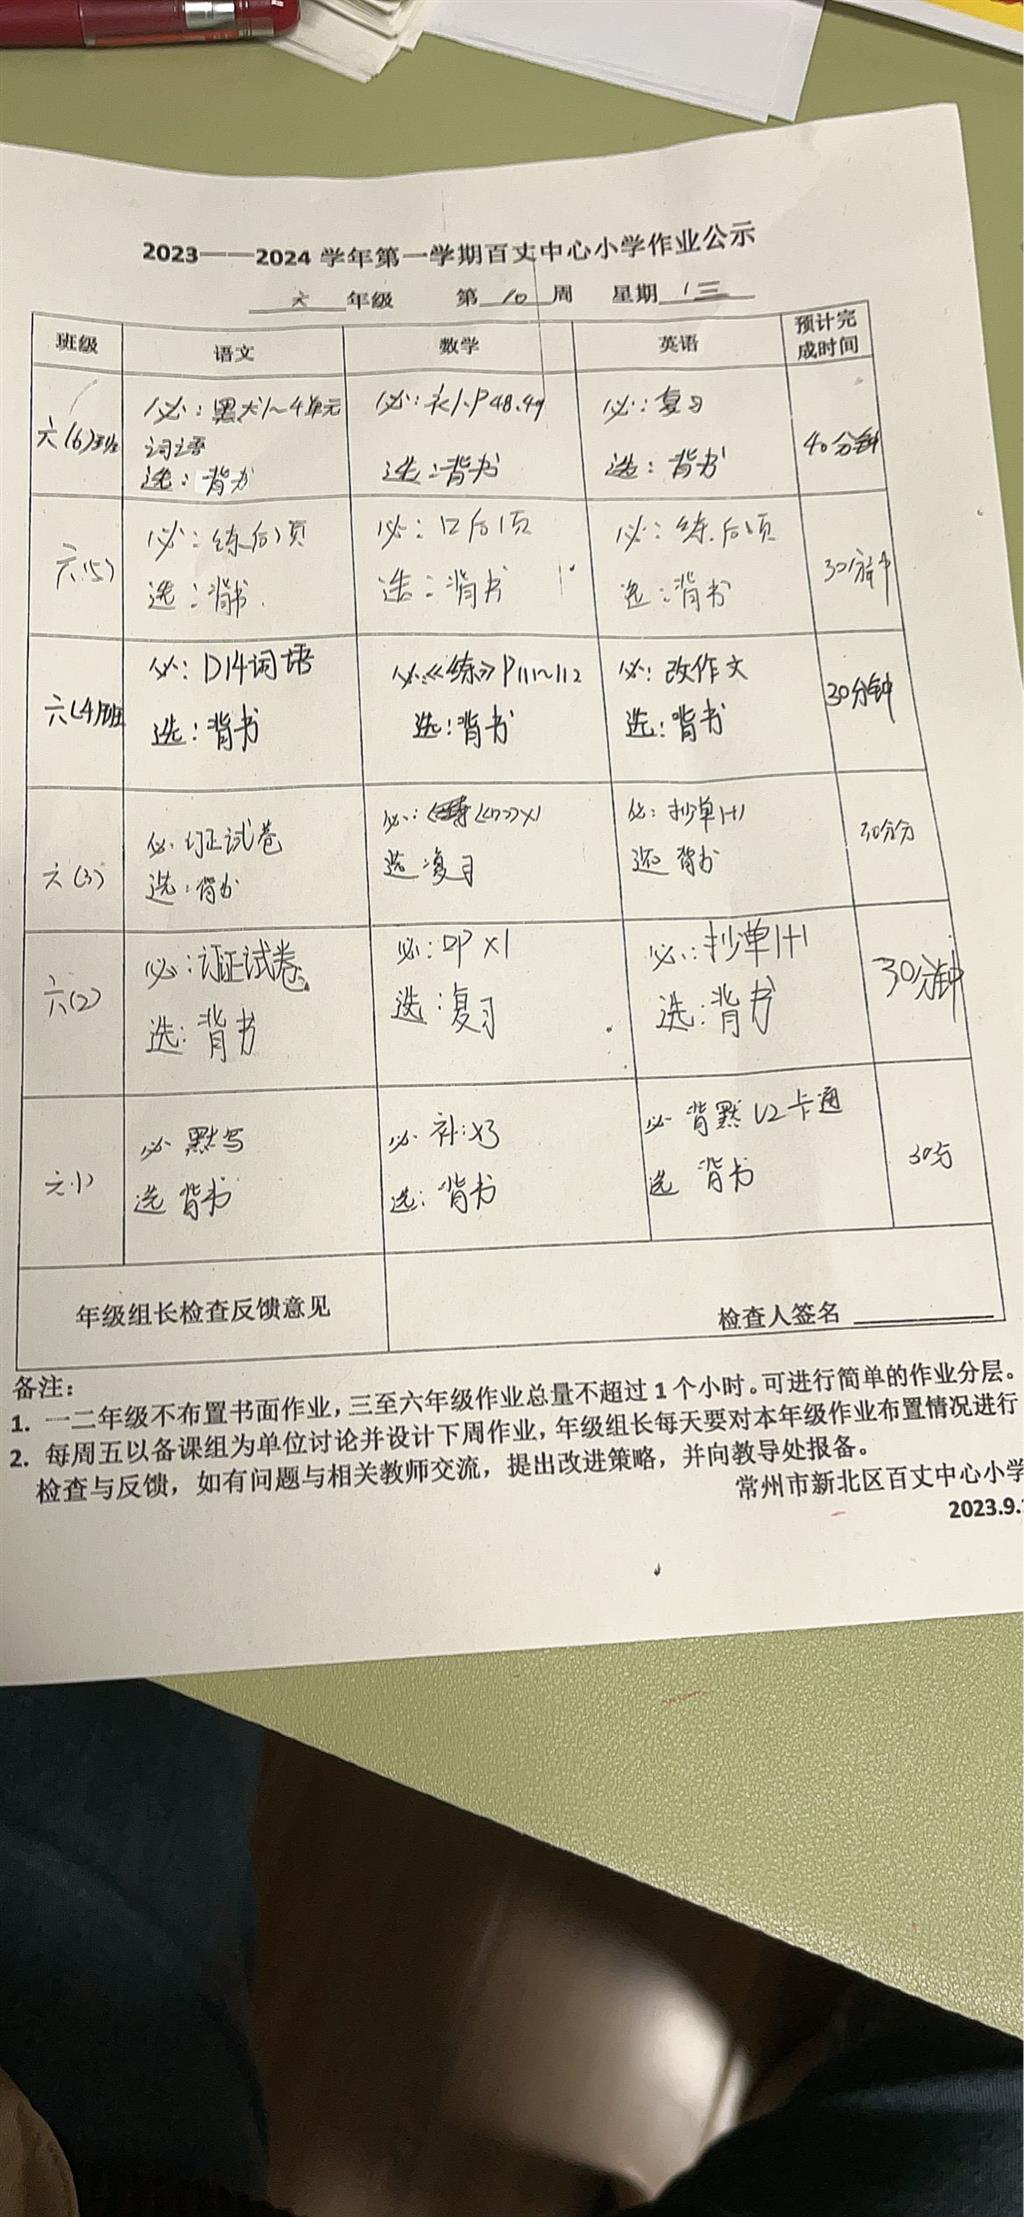 2023——2024 学年第一学期百丈中心小学作业公示
六 年级 第 10 周 星期 三
班级 语文 数学 英语 预计完成时间
六(6)班
必：默大1~4单元
词语
选：背书
必：补P48.49
选：背书
必：复习
选：背书
40分钟
六(5)
必：练后1页
选：背书
必：口后1页
选：背书
必：练后1页
选：背书
30分钟
六(4)班
必：D14词语
选：背书
必：《练》P111~112
选：背书
必：改作文
选：背书
30分钟
六(3)
必：订正试卷
选：背书
必：X1
选：复习
必：抄单1+1
选：背书
30分
六(2)
必：订正试卷
选：背书
必：DP X1
选：复习
必：抄单1+1
选：背书
30分钟
六(1)
必 默写
选 背书
必：补
选：背书
必 背默U2卡通
选 背书
30分
年级组长检查反馈意见
检查人签名
备注：
1. 一二年级不布置书面作业，三至六年级作业总量不超过 1 个小时。可进行简单的作业分层。
2. 每周五以备课组为单位讨论并设计下周作业，年级组长每天要对本年级作业布置情况进行
检查与反馈，如有问题与相关教师交流，提出改进策略，并向教导处报备。
常州市新北区百丈中心小学
2023.9.